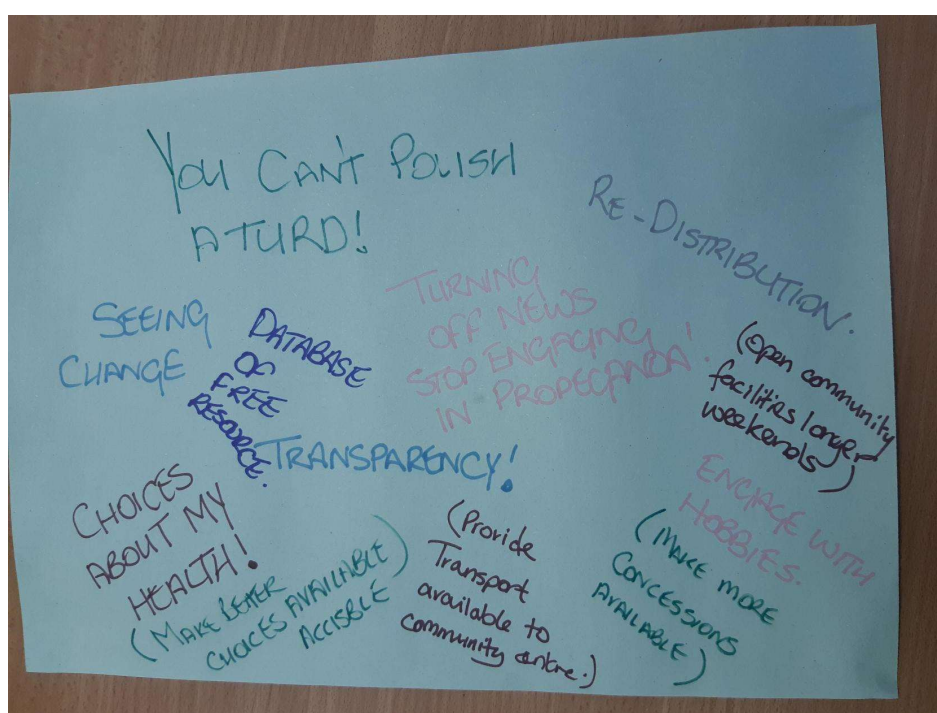 YOU CAN'T POLISH
A TURD!
RE-DISTRIBUTION.
SEEING
CHANGE
DATABASE
OG
FREE
RESOURCE.
TURNING
OFF NEWS
STOP ENGAGING
IN PROPECANDA!
(Open community
facilities longer
weekends)
TRANSPARENCY!
ENGAGE WITH
HOBBIES.
CHOICES
ABOUT MY
HEALTH!
(MAKE BETTER
CHOICES AVAILABLE)
ACCISBLE
(Provide
Transport
available to
community centre.)
(MAKE MORE
CONCESSIONS
AVAILABLE)